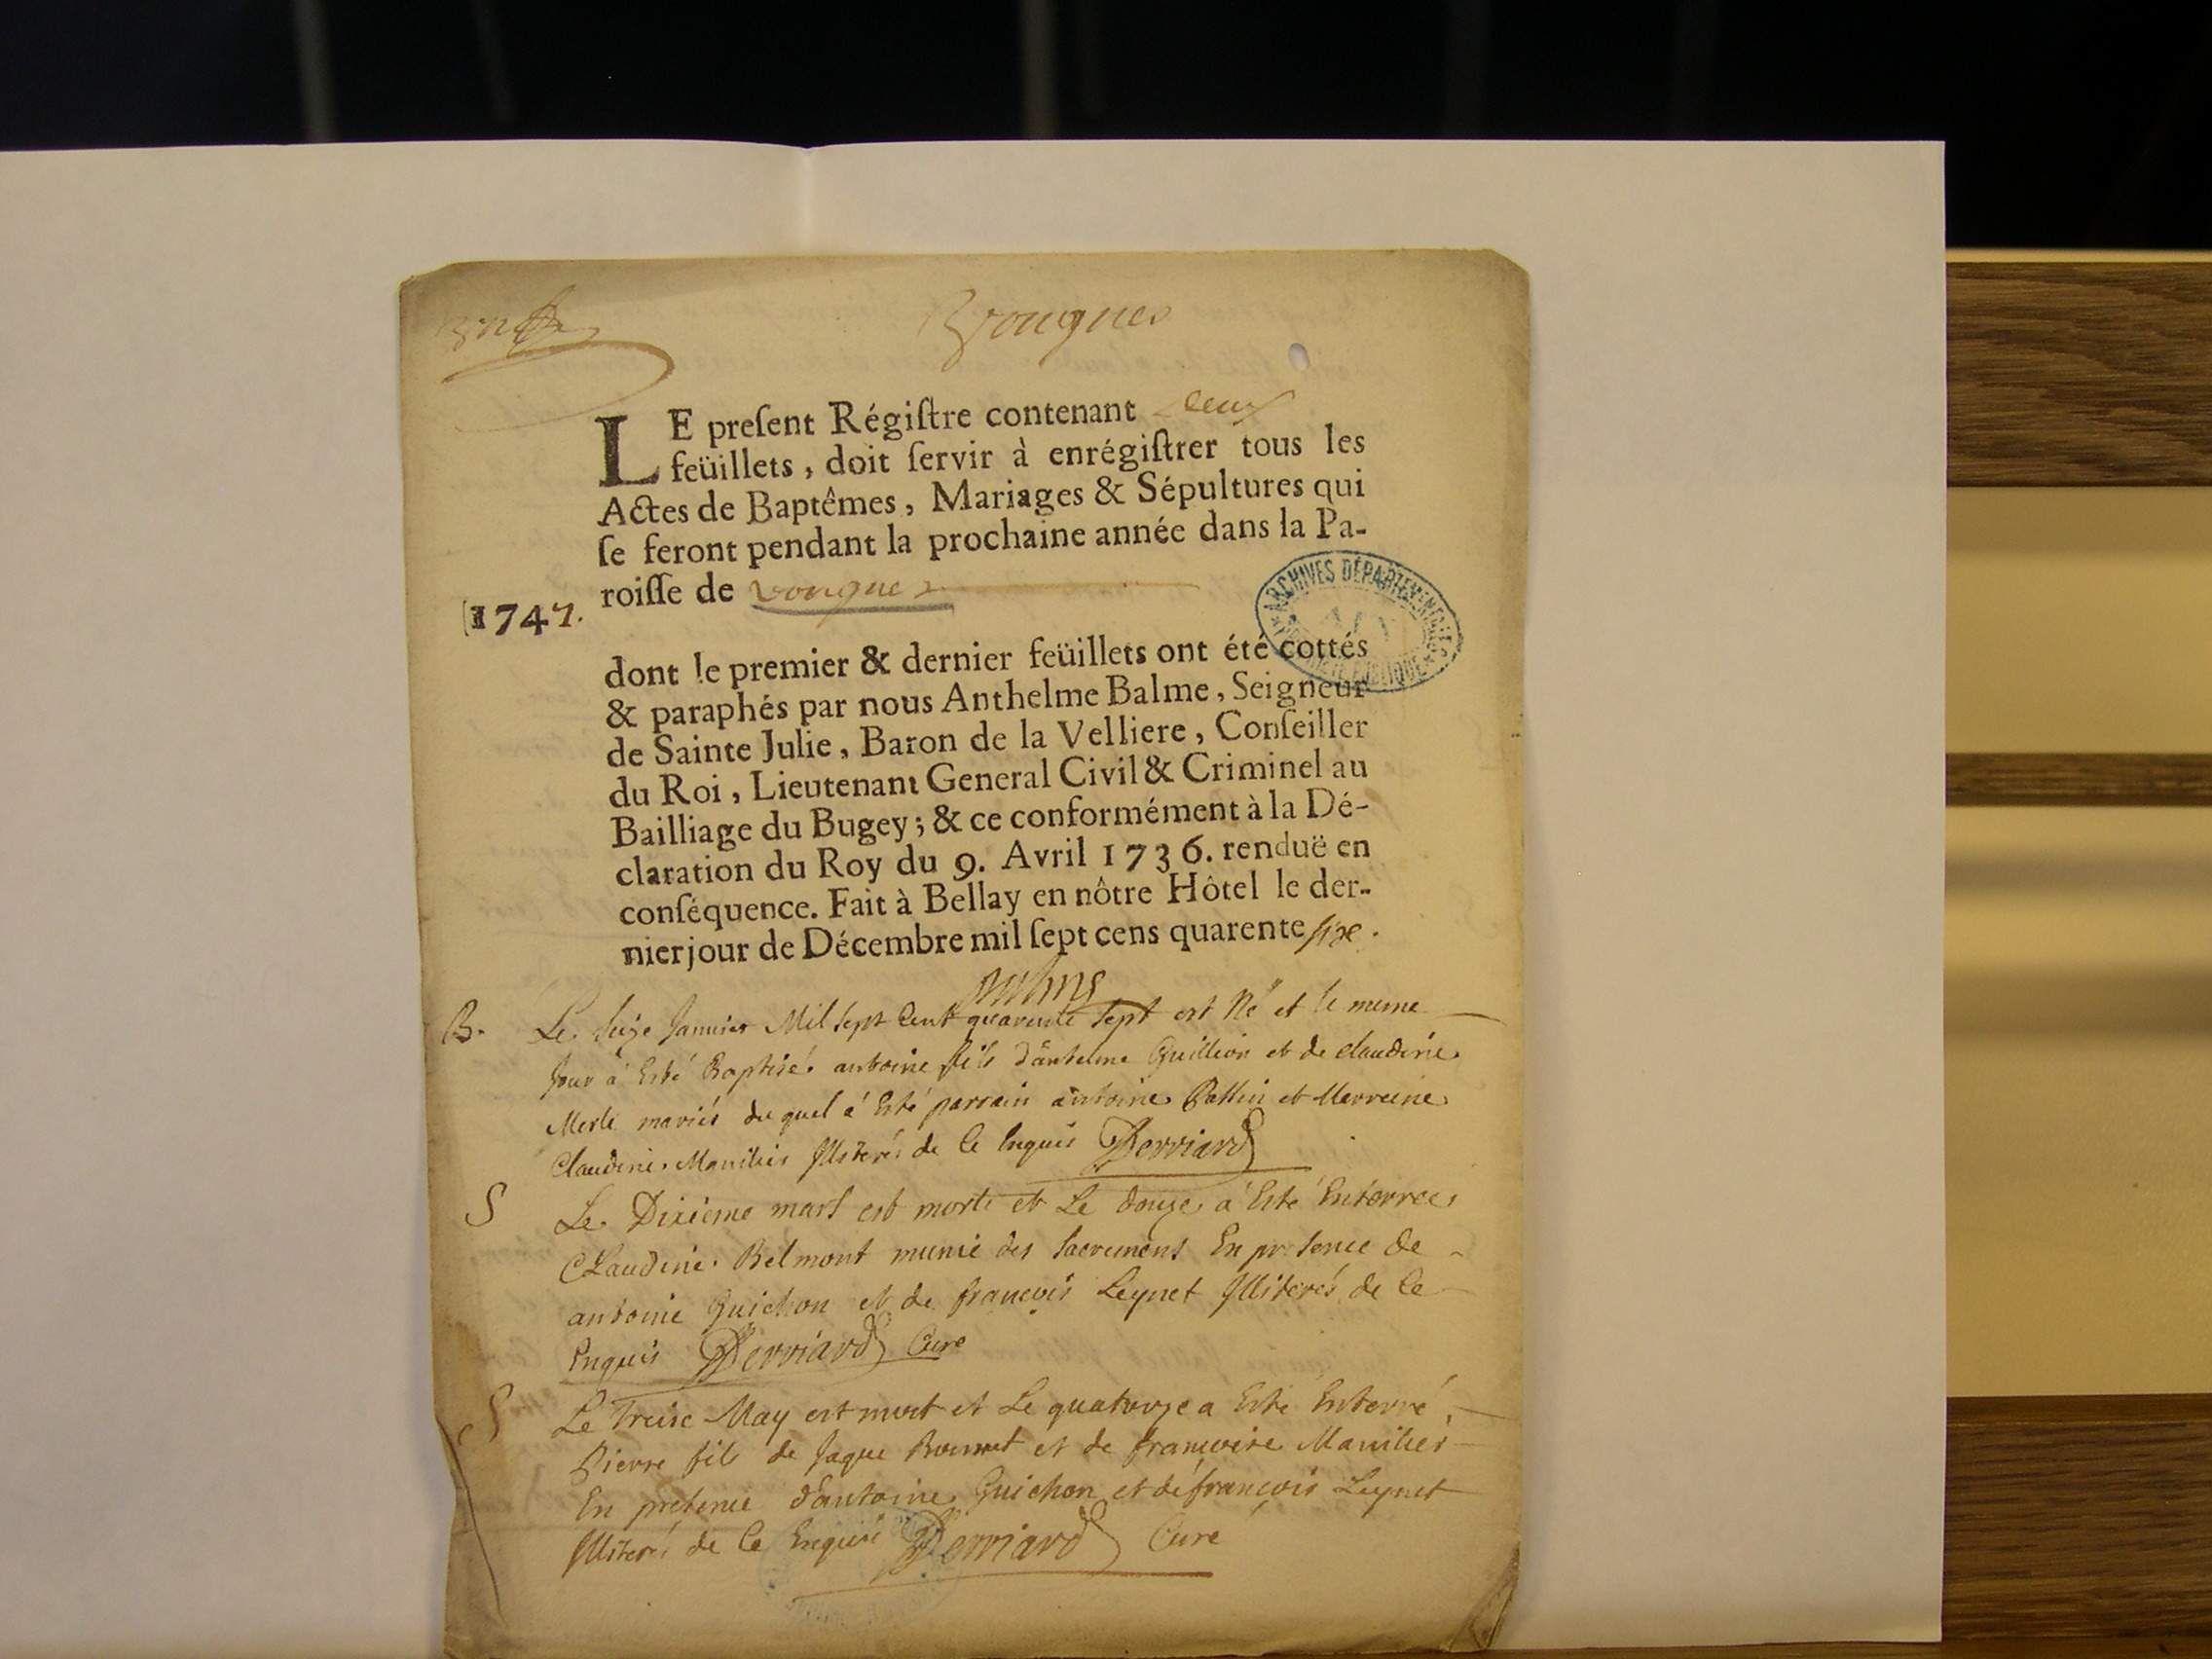 Vongnes
LE preſent Régiſtre contenant deux
feüillets, doit ſervir à enrégiſtrer tous les
Actes de Baptêmes, Mariages & Sépultures qui
ſe feront pendant la prochaine année dans la Pa-
roiſſe de vongnes
1747.
ARCHIVES DÉPARTEMENTALES
dont le premier & dernier feüillets ont été cottés
& paraphés par nous Anthelme Balme, Seigneur
de Sainte Julie, Baron de la Velliere, Conſeiller
du Roi, Lieutenant General Civil & Criminel au
Bailliage du Bugey; & ce conformément à la Dé-
claration du Roy du 9. Avril 1736. renduë en
conſéquence. Fait à Bellay en nôtre Hôtel le der-
nier jour de Décembre mil ſept cens quarente ſixe.
B. Le seize Janvier Mil sept Cent quarente sept est Né et le meme
Jour a Esté Baptisé antoine fils d'antelme Guillion et de claudine
Merle mariés du quel a Esté parrain antoine et Marreine
Claudine Illiterés de Ce Enquis Derriard
S Le Dixieme mars est morte et Le douze a Esté Enterree
CLaudine Belmont munie des sacrements En presence de
antoine Guichon et de françois Leynet Illiterés de Ce
Enquis Derriard Curé
S Le Treise May est mort et Le quatorze a Esté Enterré
Pierre fils de Jaque et de françoise
En presence d'antoine Guichon et de françois Leynet
Illiterés de Ce Enquis Derriard Curé